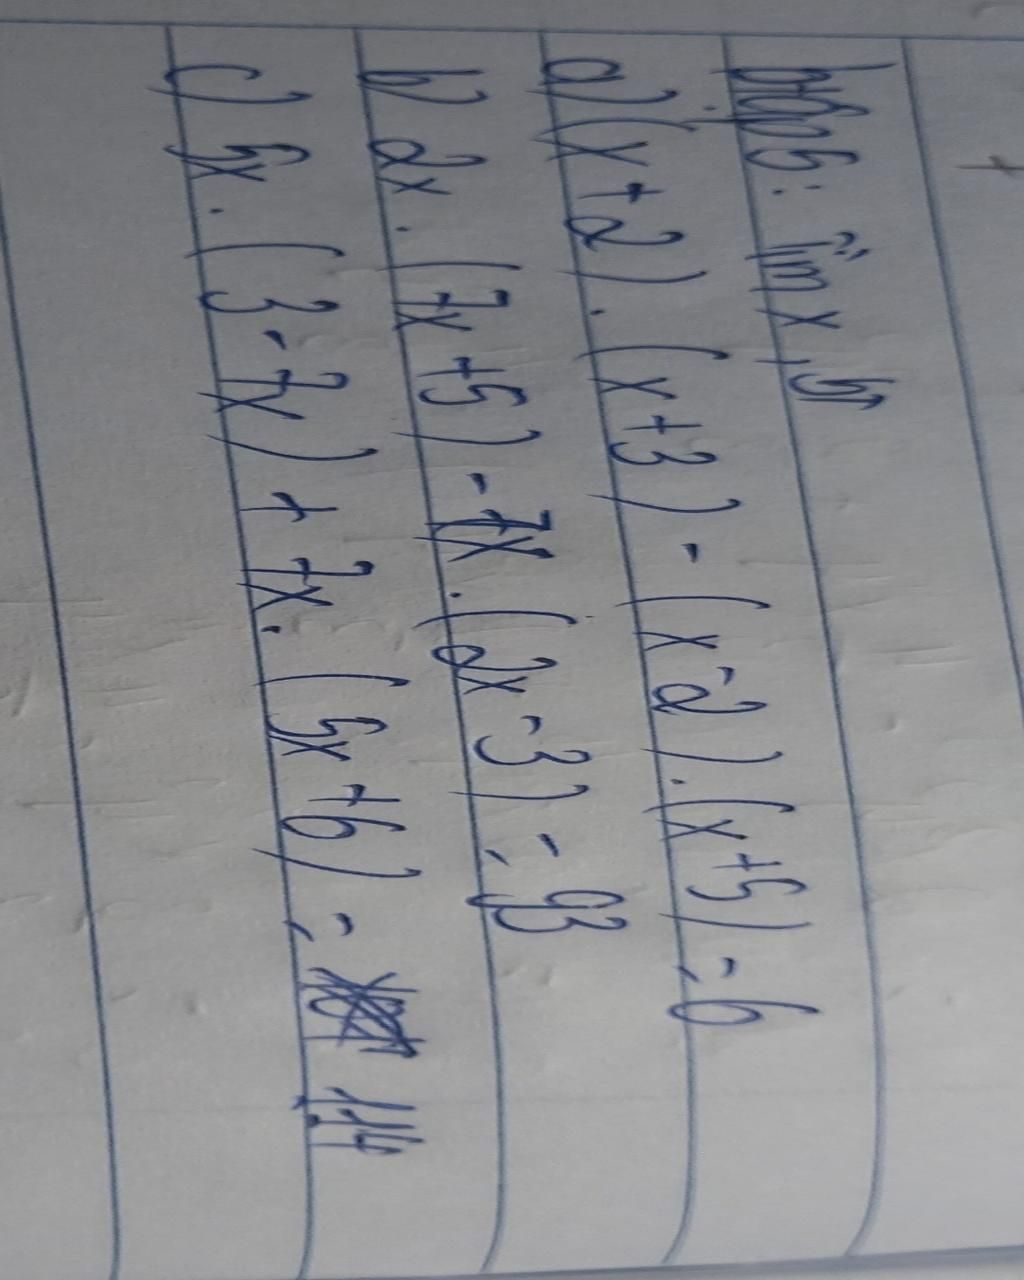 bài 5: Tìm x, bt
a) (x+2).(x+3)-(x-2).(x+5)=6
b) 2x.(7x+5)-7x.(2x-3)=93
c) 5x.(3-7x)+7x.(5x+6)=114